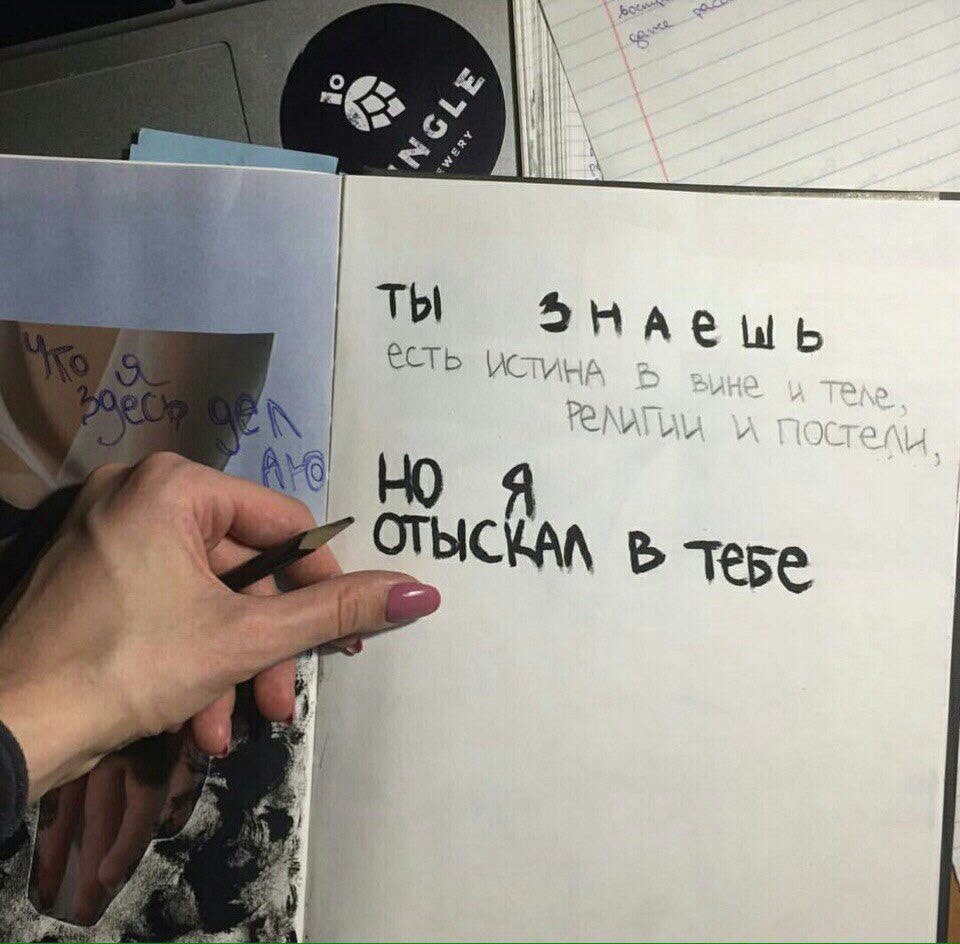 JO
NGLE
EWERY
даже
Что я
здесь дел
аю
ты знаешь
есть истина в вине и теле,
религии и постели,
но я
отыскал в тебе